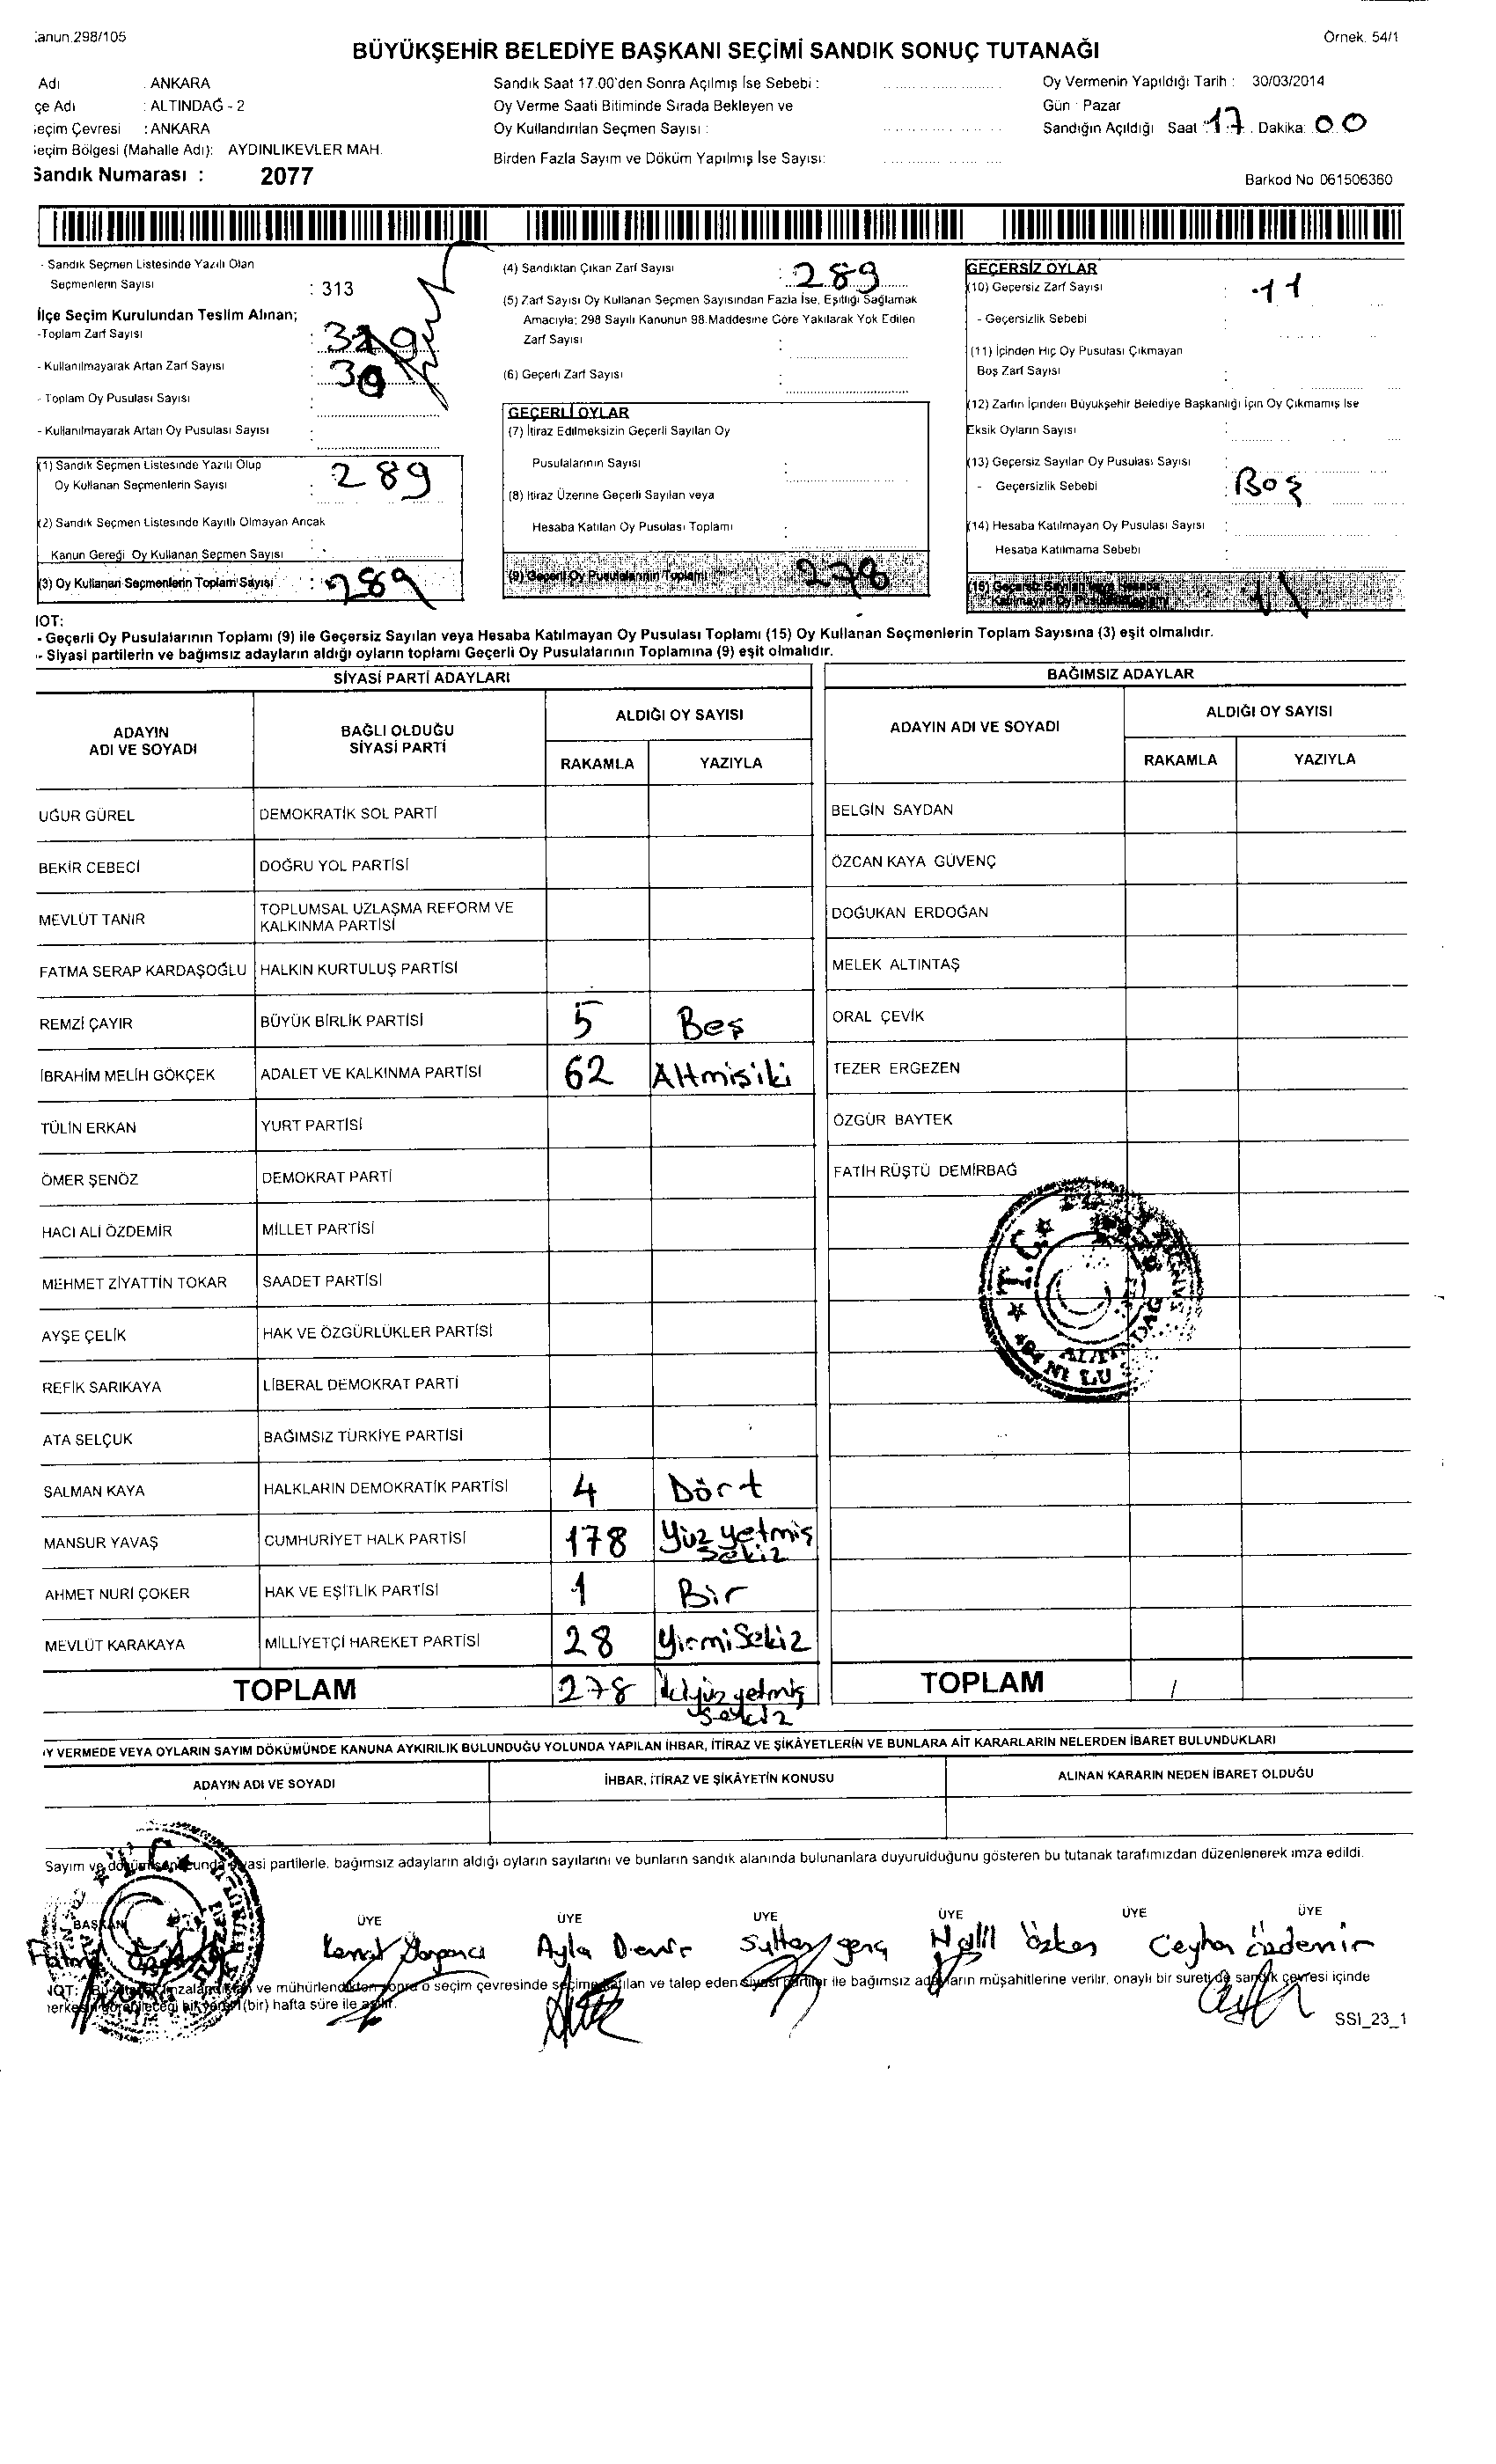 Kanun.298/105
Örnek. 54/1
BÜYÜKŞEHİR BELEDİYE BAŞKANI SEÇİMİ SANDIK SONUÇ TUTANAĞI
Adı : ANKARA
çe Adı : ALTINDAĞ - 2
eçim Çevresi : ANKARA
eçim Bölgesi (Mahalle Adı): AYDINLIKEVLER MAH.
Sandık Numarası : 2077
Sandık Saat 17.00'den Sonra Açılmış İse Sebebi :
Oy Verme Saati Bitiminde Sırada Bekleyen ve
Oy Kullandırılan Seçmen Sayısı :
Birden Fazla Sayım ve Döküm Yapılmış İse Sayısı:
Oy Vermenin Yapıldığı Tarih : 30/03/2014
Gün : Pazar
Sandığın Açıldığı Saat : 17 . Dakika: 00
Barkod No 061506360
- Sandık Seçmen Listesinde Yazılı Olan
Seçmenlerin Sayısı : 313
İlçe Seçim Kurulundan Teslim Alınan;
-Toplam Zarf Sayısı :
- Kullanılmayarak Artan Zarf Sayısı : 30
- Toplam Oy Pusulası Sayısı :
- Kullanılmayarak Artan Oy Pusulası Sayısı :
(1) Sandık Seçmen Listesinde Yazılı Olup
Oy Kullanan Seçmenlerin Sayısı : 289
(2) Sandık Seçmen Listesinde Kayıtlı Olmayan Ancak
Kanun Gereği Oy Kullanan Seçmen Sayısı :
(3) Oy Kullanan Seçmenlerin Toplam Sayısı : 289
(4) Sandıktan Çıkan Zarf Sayısı : 289
(5) Zarf Sayısı Oy Kullanan Seçmen Sayısından Fazla İse, Eşitliği Sağlamak
Amacıyla; 298 Sayılı Kanunun 98.Maddesine Göre Yakılarak Yok Edilen
Zarf Sayısı :
(6) Geçerli Zarf Sayısı :
GEÇERLİ OYLAR
(7) İtiraz Edilmeksizin Geçerli Sayılan Oy
Pusulalarının Sayısı :
(8) İtiraz Üzerine Geçerli Sayılan veya
Hesaba Katılan Oy Pusulası Toplamı :
(9) Geçerli Oy Pusulalarının Toplamı 278
GEÇERSİZ OYLAR
(10) Geçersiz Zarf Sayısı : 11
- Geçersizlik Sebebi :
(11) İçinden Hiç Oy Pusulası Çıkmayan
Boş Zarf Sayısı :
(12) Zarfın İçinden Büyükşehir Belediye Başkanlığı İçin Oy Çıkmamış İse
Eksik Oyların Sayısı :
(13) Geçersiz Sayılan Oy Pusulası Sayısı :
- Geçersizlik Sebebi : Boş
(14) Hesaba Katılmayan Oy Pusulası Sayısı :
Hesaba Katılmama Sebebi :
(15) Geçersiz Sayılan veya Hesaba
Katılmayan Oy Pusulası Toplamı 11
NOT:
- Geçerli Oy Pusulalarının Toplamı (9) ile Geçersiz Sayılan veya Hesaba Katılmayan Oy Pusulası Toplamı (15) Oy Kullanan Seçmenlerin Toplam Sayısına (3) eşit olmalıdır.
- Siyasi partilerin ve bağımsız adayların aldığı oyların toplamı Geçerli Oy Pusulalarının Toplamına (9) eşit olmalıdır.
SİYASİ PARTİ ADAYLARI
ADAYIN ADI VE SOYADI
BAĞLI OLDUĞU SİYASİ PARTİ
ALDIĞI OY SAYISI
RAKAMLA YAZIYLA
UĞUR GÜREL DEMOKRATİK SOL PARTİ
BEKİR CEBECİ DOĞRU YOL PARTİSİ
MEVLÜT TANIR TOPLUMSAL UZLAŞMA REFORM VE
KALKINMA PARTİSİ
FATMA SERAP KARDAŞOĞLU HALKIN KURTULUŞ PARTİSİ
REMZİ ÇAYIR BÜYÜK BİRLİK PARTİSİ 5 Beş
İBRAHİM MELİH GÖKÇEK ADALET VE KALKINMA PARTİSİ 62 Altmışiki
TÜLİN ERKAN YURT PARTİSİ
ÖMER ŞENÖZ DEMOKRAT PARTİ
HACI ALİ ÖZDEMİR MİLLET PARTİSİ
MEHMET ZİYATTİN TOKAR SAADET PARTİSİ
AYŞE ÇELİK HAK VE ÖZGÜRLÜKLER PARTİSİ
REFİK SARIKAYA LİBERAL DEMOKRAT PARTİ
ATA SELÇUK BAĞIMSIZ TÜRKİYE PARTİSİ
SALMAN KAYA HALKLARIN DEMOKRATİK PARTİSİ 4 Dört
MANSUR YAVAŞ CUMHURİYET HALK PARTİSİ 178 Yüz yetmiş
sekiz
AHMET NURİ ÇOKER HAK VE EŞİTLİK PARTİSİ 1 Bir
MEVLÜT KARAKAYA MİLLİYETÇİ HAREKET PARTİSİ 28 YirmiSekiz
TOPLAM 278 İkiyüz yetmiş
sekiz
BAĞIMSIZ ADAYLAR
ADAYIN ADI VE SOYADI
ALDIĞI OY SAYISI
RAKAMLA YAZIYLA
BELGİN SAYDAN
ÖZCAN KAYA GÜVENÇ
DOĞUKAN ERDOĞAN
MELEK ALTINTAŞ
ORAL ÇEVİK
TEZER ERGEZEN
ÖZGÜR BAYTEK
FATİH RÜŞTÜ DEMİRBAĞ
T.C.
TOPLAM /
OY VERMEDE VEYA OYLARIN SAYIM DÖKÜMÜNDE KANUNA AYKIRILIK BULUNDUĞU YOLUNDA YAPILAN İHBAR, İTİRAZ VE ŞİKÂYETLERİN VE BUNLARA AİT KARARLARIN NELERDEN İBARET BULUNDUKLARI
ADAYIN ADI VE SOYADI
İHBAR, İTİRAZ VE ŞİKÂYETİN KONUSU
ALINAN KARARIN NEDEN İBARET OLDUĞU
Sayım ve döküm sonucunda siyasi partilerle, bağımsız adayların aldığı oyların sayılarını ve bunların sandık alanında bulunanlara duyurulduğunu gösteren bu tutanak tarafımızdan düzenlenerek imza edildi.
BAŞKAN ÜYE ÜYE ÜYE ÜYE ÜYE ÜYE
Ayla Demir Sultan genç Halil Özkes Ceyhan özdemir
NOT: Bu tutanak imzalandıktan ve mühürlendikten sonra o seçim çevresinde seçime katılan ve talep eden siyasi partiler ile bağımsız adayların müşahitlerine verilir, onaylı bir sureti de sandık çevresi içinde
herkesin görebileceği bir yere (bir) hafta süre ile asılır.
SSI_23_1